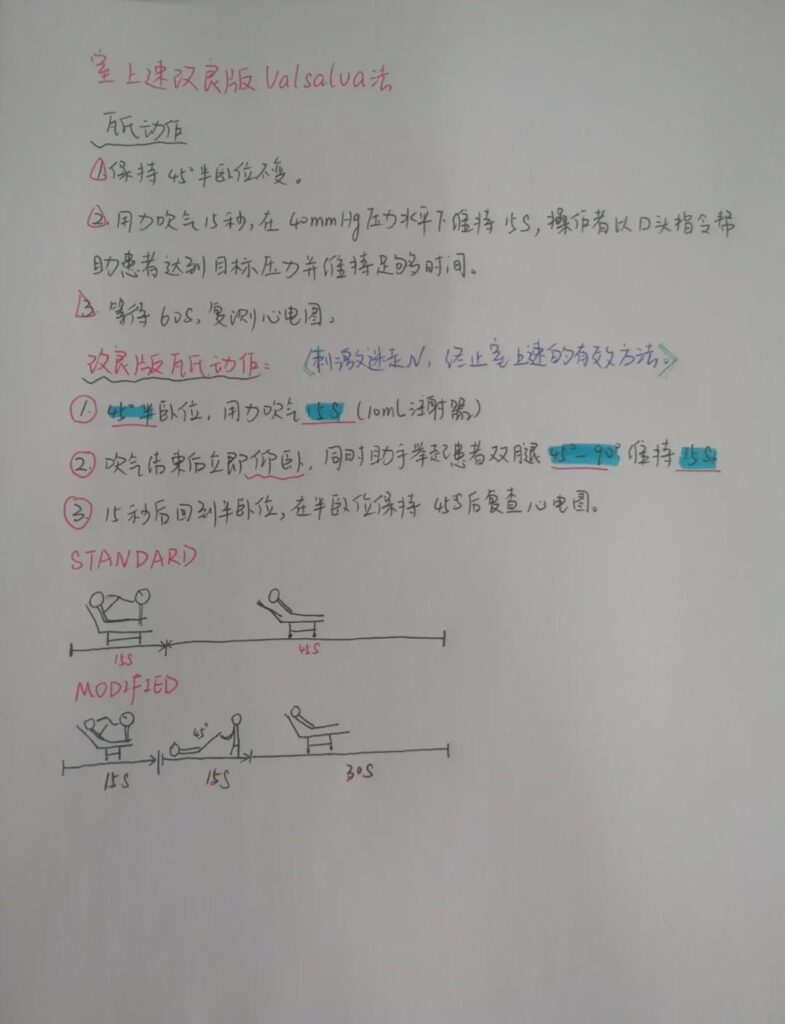 室上速改良版Valsalva法
瓦氏动作
①保持45°半卧位不变。
②.用力吹气15秒,在40mmHg压力水平下维持15S,操作者以口头指令帮
助患者达到目标压力并维持足够时间。
③.等待60S,复测心电图。
改良版瓦氏动作:《刺激迷走N,终止室上速的有效方法。》
①.45°半卧位,用力吹气15S(10mL注射器)
②.吹气结束后立即仰卧,同时助手举起患者双腿45°-90°维持15S.
③.15秒后回到半卧位,在半卧位保持45S后复查心电图。
STANDARD
15S 45S
MODIFIED
45°
15S 15S 30S